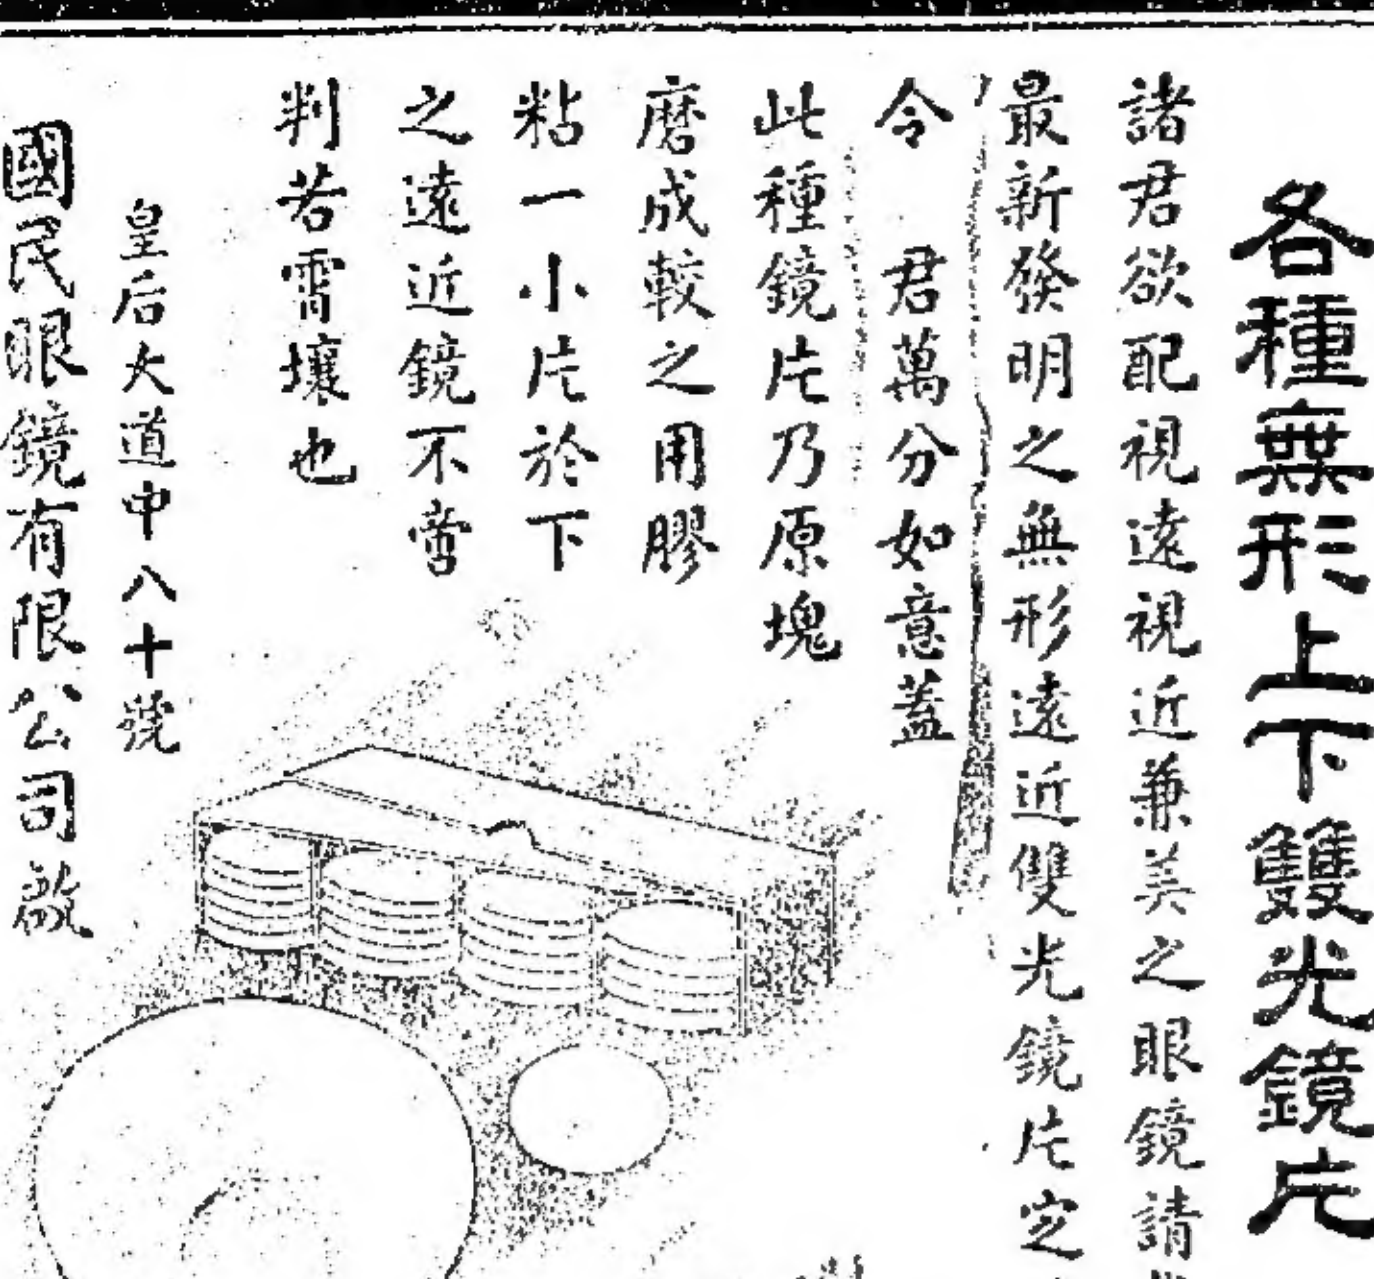 各種無形上下雙光鏡片
諸君欲配視遠視近兼美之眼鏡請
最新發明之無形遠近雙光鏡片定
令 君萬分如意蓋
此種鏡片乃原塊
磨成較之用膠
粘一小片於下
之遠近鏡不啻
判若霄壤也
皇后大道中八十號
國民眼鏡有限公司啟